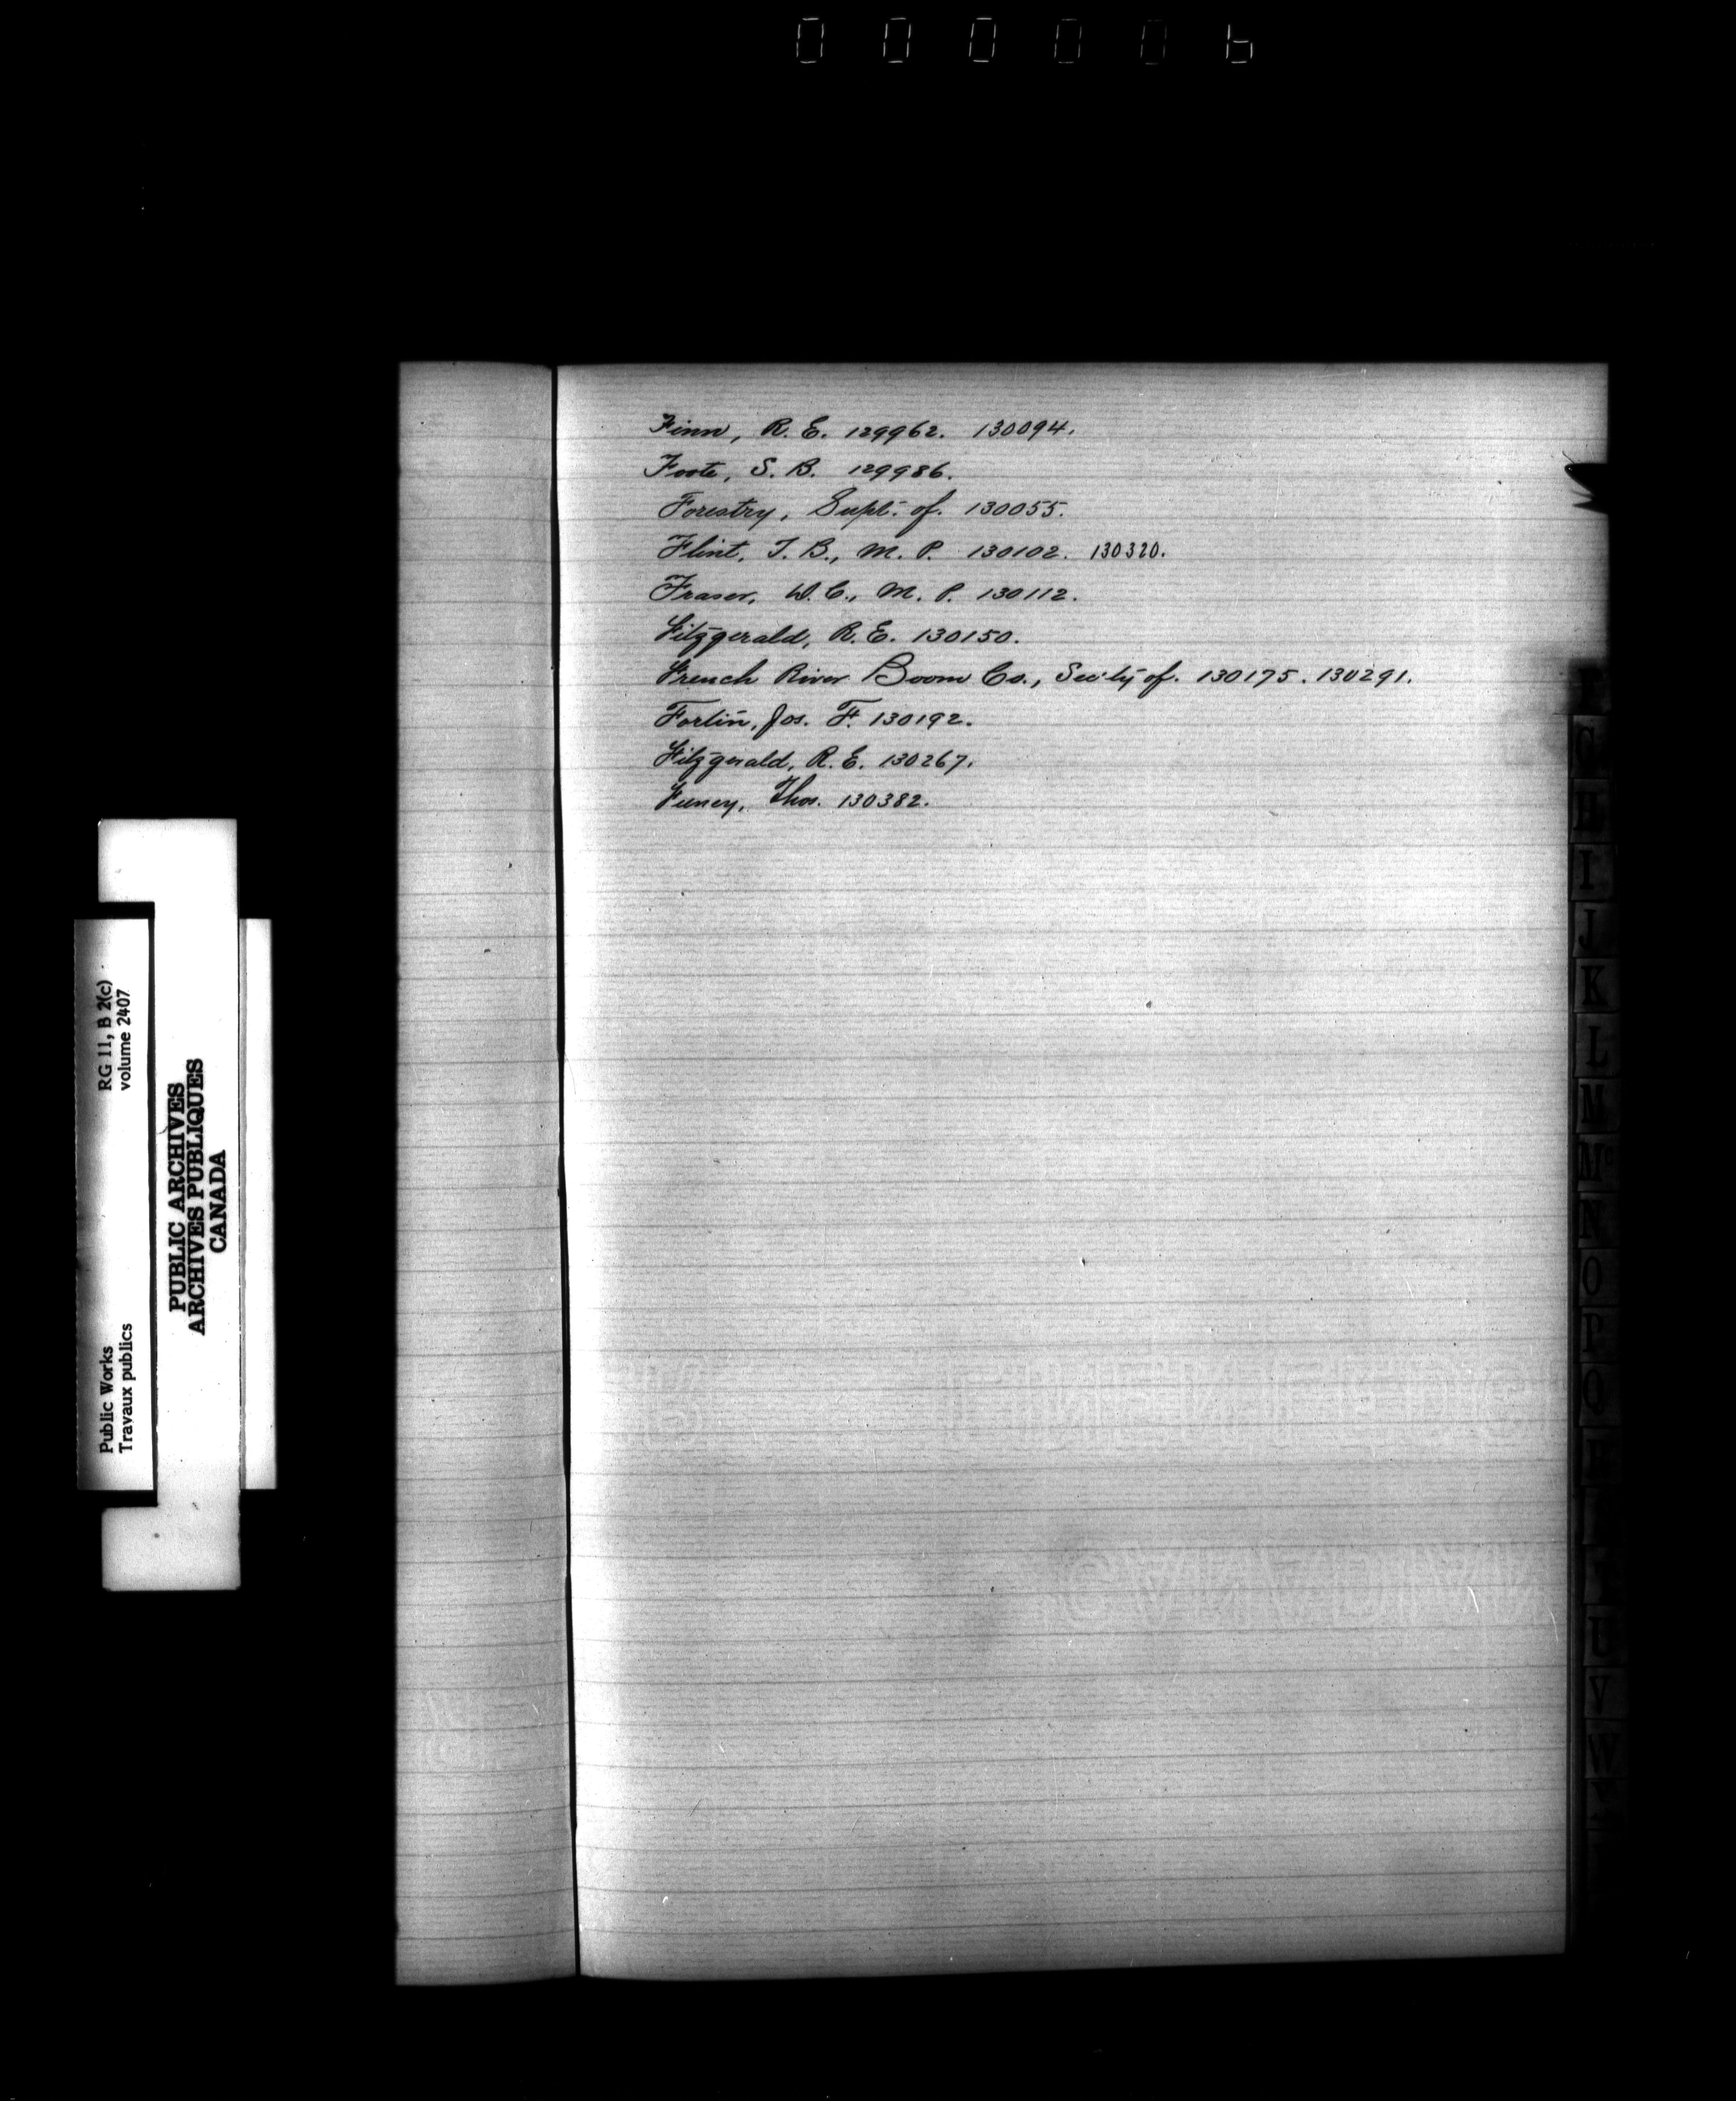 000006
Finn, R. E. 129962. 130094.
Foote, S. B. 129986.
Forestry, Supt. of. 130055.
Flint, T. B., M. P. 130102. 130320.
Fraser, W. C., M. P. 130112.
Fitzgerald, R. E. 130150.
French River Boom Co., Sec'ty of. 130175. 130291.
Fortin, Jos. F. 130192.
Fitzgerald, R. E. 130267.
Thos. 130382.
RG 11, B 2(c)
volume 2407
Public Works
Travaux publics
PUBLIC ARCHIVES
ARCHIVES PUBLIQUES
CANADA
I
J
K
L
M
Mc
N
O
P
Q
R
U
V
W